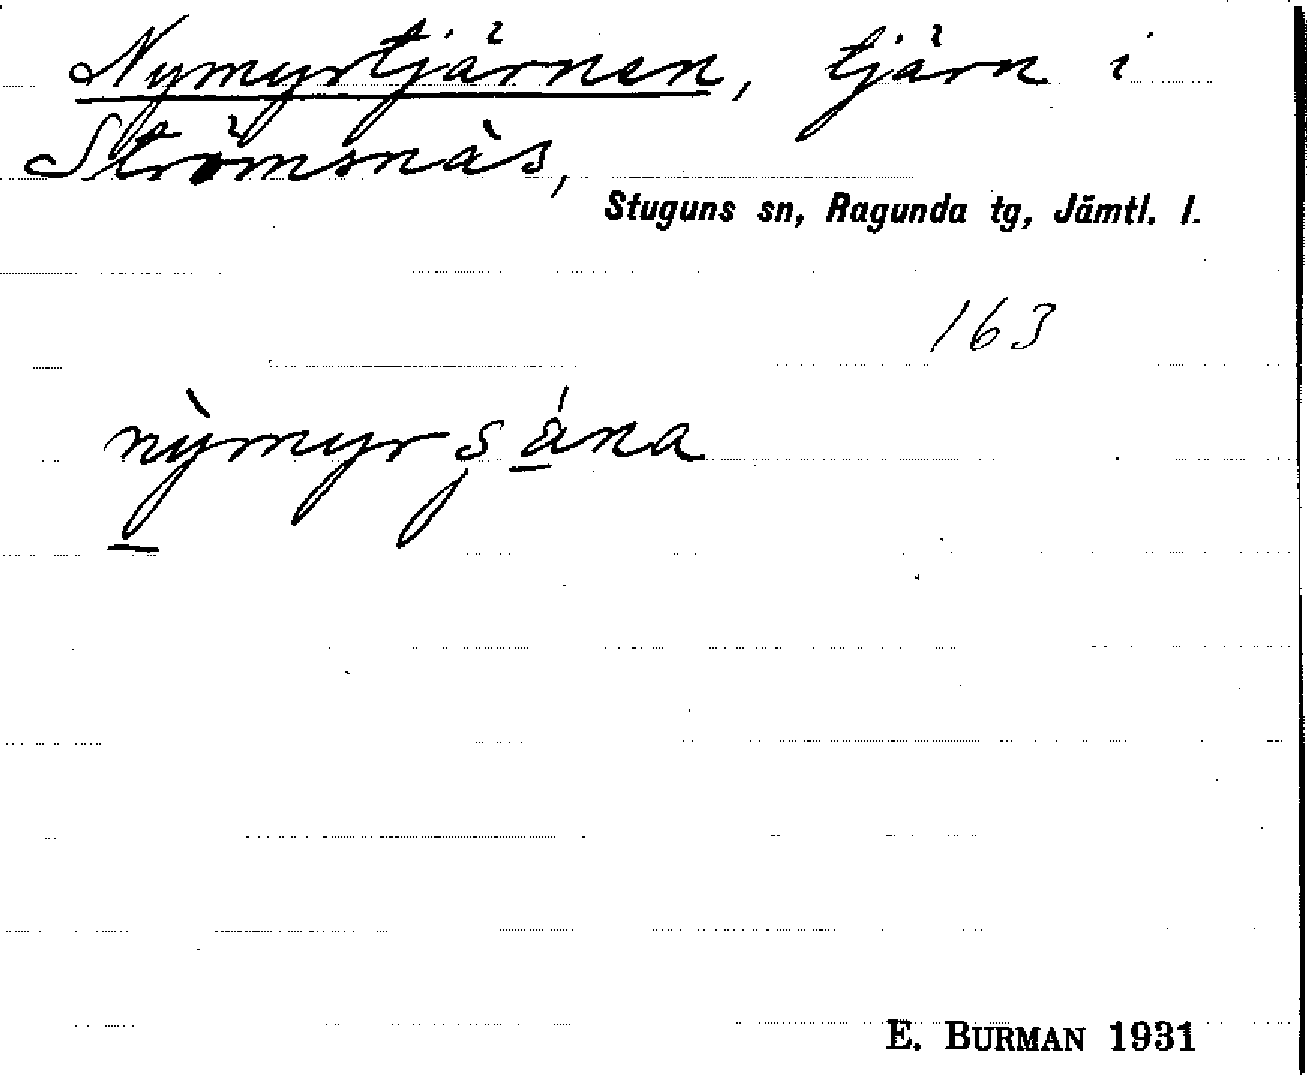 Nymyrtjärnen, tjärn i
Strömsnäs,
Stuguns sn, Ragunda tg, Jämtl. l.
163
nỳmyrşána
E. BURMAN 1931